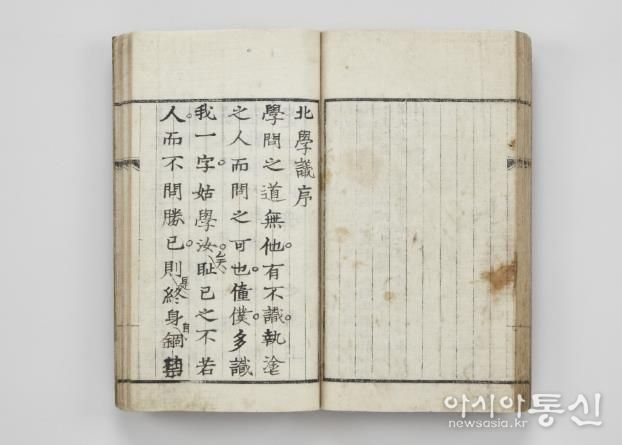 北學議序
學問之道無他。有不識。執塗
之人而問之可也。僮僕。多識
我一字。姑學汝。矣恥己之不若
人而不問勝己。則是終身自錮
아시아통신
newsasia.kr